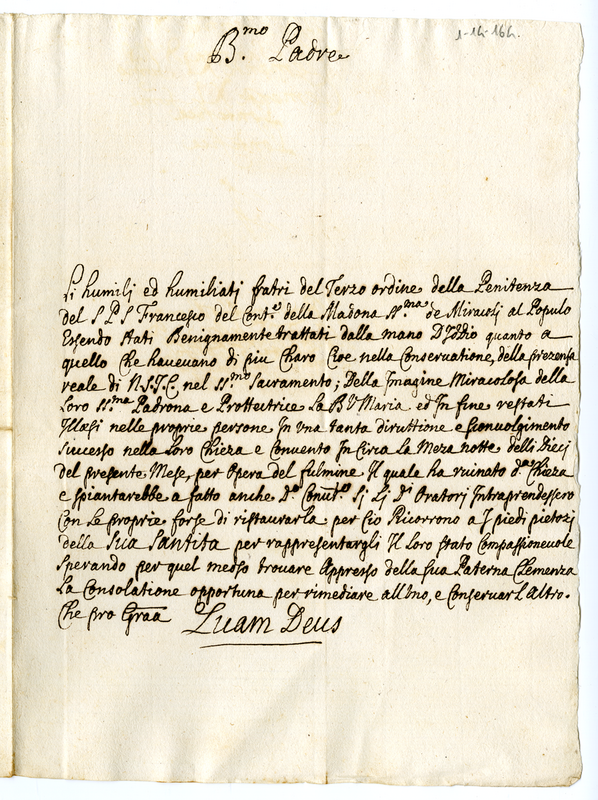 1-16-164.
B.mo Padre
Li humilj ed humiliatj fratri del Terzo ordine della Penitenza
del S P S Francesco del Cont.o della Madona SS.ma de Miracolj al Populo
Essendo stati Benignamente trattati dalla mano D'Iddio quanto a
quello Che havevano di piu Charo Cioe nella Conservatione, della prezenza
reale di N.S.J.C. nel SS.mo Sacramento; Della Imagine Miracolosa della
Loro SS.ma Padrona e Prottectrice La B V Maria ed In fine restati
Illesi nelle proprie persone In una tanta diruttione e sconvolgimento
successo nella Loro Chieza e Convento In Circa La Meza notte delli Diecj
del presente Mese, per Opera del fulmine Il quale ha ruinato d.a Chieza
e spiantarebbe a fatto anche D.o Convt.o Sj Lj D.i Oratorj Intraprendessero
Con Le proprie forse di ristaurarla per Cio Ricorrono a I piedi pietozj
della Sua Santita per rappresentargli Il Loro stato Compassionevole
Sperando per quel mezso trouare Appresso della sua Paterna Clemenza
La Consolatione opportuna per rimediare all'Uno, e Conservar L'altro.
Che pro Graa Quam Deus